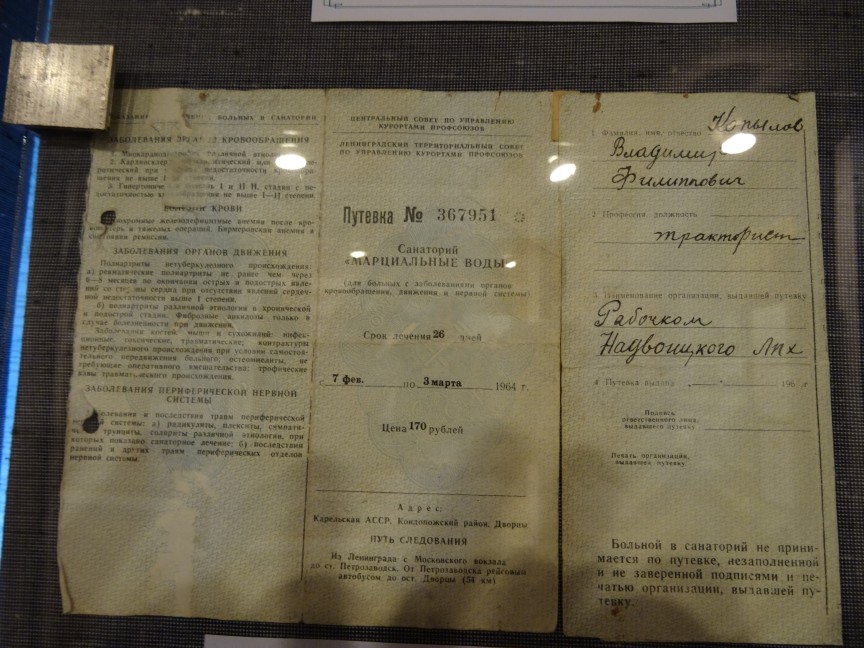 БОЛЬНЫХ В САНАТОРИИ
ЗАБОЛЕВАНИЯ КРОВООБРАЩЕНИЯ
1. этиологии.
2.
ритической при недостаточности кровообраще-
ния не выше I степени.
3. I и II Н. стадии с не-
достаточностью не выше I—II степени
БОЛЕЗНИ КРОВИ
железодефицитные анемии после кро-
и тяжелых операций. Бирмеровская анемия в
ремиссии.
ЗАБОЛЕВАНИЯ ОРГАНОВ ДВИЖЕНИЯ
Полиартриты нетуберкулезного происхождения:
а) ревматические полиартриты не ранее чем через
6—8 месяцев по окончании острых и подострых явле-
ний со стороны сердца при отсутствии явлений сердеч-
ной недостаточности выше I степени.
б) полиартриты различной этиологии в хронической
и подострой стадии. Фиброзные анкилозы только в
случае болезненности при движении.
Заболевания костей, мышц и сухожилий: инфек-
ционные, токсические, травматические; контрактуры
нетуберкулезного происхождения при условии самостоя-
тельного передвижения больного; остеомиелиты, не
требующие оперативного вмешательства; трофические
язвы травматического происхождения.
ЗАБОЛЕВАНИЯ ПЕРИФЕРИЧЕСКОЙ НЕРВНОЙ
СИСТЕМЫ
и последствия травм периферической
системы: а) радикулиты, плекситы, симпати-
солариты различной этиологии, при
которых показано санаторное лечение; б) последствия
ранений и других травм периферических отделов
нервной системы.
ЦЕНТРАЛЬНЫЙ СОВЕТ ПО УПРАВЛЕНИЮ
КУРОРТАМИ ПРОФСОЮЗОВ
ЛЕНИНГРАДСКИЙ ТЕРРИТОРИАЛЬНЫЙ СОВЕТ
ПО УПРАВЛЕНИЮ КУРОРТАМИ ПРОФСОЮЗОВ
Путевка № 367951
Санаторий
«МАРЦИАЛЬНЫЕ ВОДЫ»
(для больных с заболеваниями органов
кровообращения, движения и нервной системы)
Срок лечения 26 дней
с 7 фев. по 3 марта 1964 г.
Цена 170 рублей
Адрес:
Карельская АССР, Кондопожский район, Дворцы
ПУТЬ СЛЕДОВАНИЯ
Из Ленинграда с Московского вокзала
до ст. Петрозаводск. От Петрозаводска рейсовым
автобусом до ост. Дворцы (54 км)
1 Фамилия, имя, отчество Копылов
Владимир
Филиппович
2 Профессия, должность
тракторист
3 Наименование организации, выдавшей путевку
Рабочком
Надвоицкого лпх
4 Путевка выдана „ “ 196 г
Подпись
ответственного лица,
выдавшего путевку
Печать организации,
выдавшей путевку
Больной в санаторий не прини-
мается по путевке, незаполненной
и не заверенной подписями и пе-
чатью организации, выдавшей пу-
тевку.